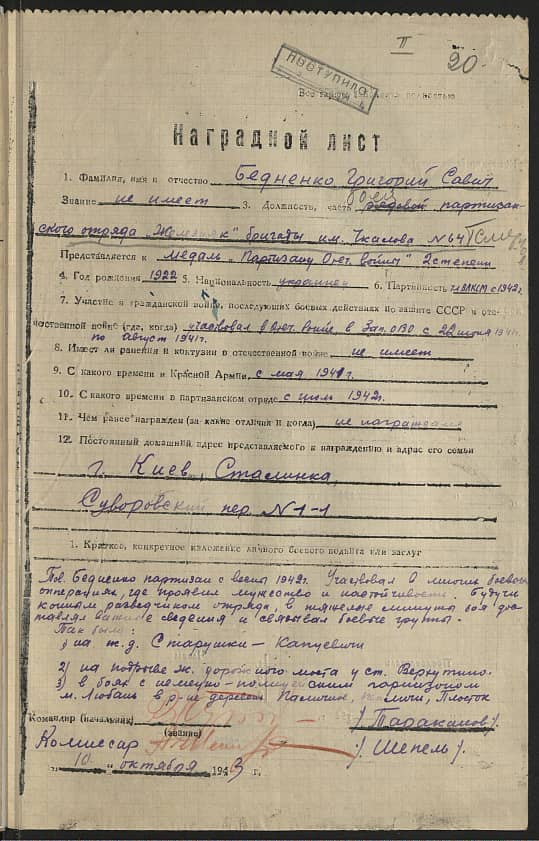 II 20
ПОСТУПИЛО
Наградной лист
1. Фамилия, имя и отчество Бедненко Григорий Савит
Звание не имеет 3. Должность, часть рядовой партизан-
боец
ского отряда „Железняк" бригады им. Чкалова N 64
Представляется к медаль „Партизану Отеч. войны" 2 степени
4. Год рождения 1922 5. Национальность украинец 6. Партийность чл ВЛКСМ с 1942г.
7. Участие в гражданской войне, последующих боевых действиях по защите СССР и отече-
чественной войне (где, когда) участвовал в Отеч. войне, в Зап. ОВО с 22 июня 1941г.
по август 1941г.
8. Имеет ли ранения и контузии в отечественной войне не имеет
9. С какого времени в Красной Армии с мая 1941г.
10. С какого времени в партизанском отряде с 1942г.
11. Чем ранее награжден (за какие отличия и когда) не награждался
12. Постоянный домашний адрес представляемого к награждению и адрес его семьи
г. Киев, Сталинка,
Суворовский пер. N 1-1
1. Краткое, конкретное изложение личного боевого подвига или заслуг
Тов. Бедненко партизан с весны 1942г. Участвовал в многих боевых
операциях, где проявил мужество и настойчивость. Будучи
конным разведчиком отряда, в тяжелые минуты боя дос-
тавлял важные сведения и связывал боевые группы.
Так было:
1) на ж.д. Старушки – Капцевичи
2) на подрыве ж. дорожного моста у ст. Верхутино.
3) в боях с немецко-полицейским гарнизоном
м. Любань в р-не деревень
Командир (начальник) / Тараканов /.
(звание)
Комиссар / Шепель /.
„ 10 " октября 1943 г.